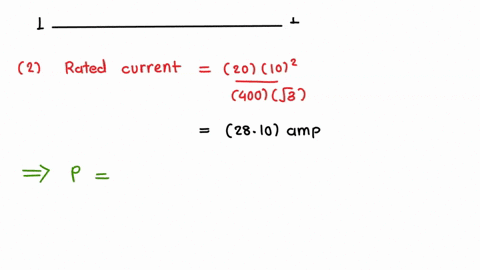 1 1
(2) Rated current = (20)(10)²
(400)(√3)
= (28.10) amp
⇒ P =